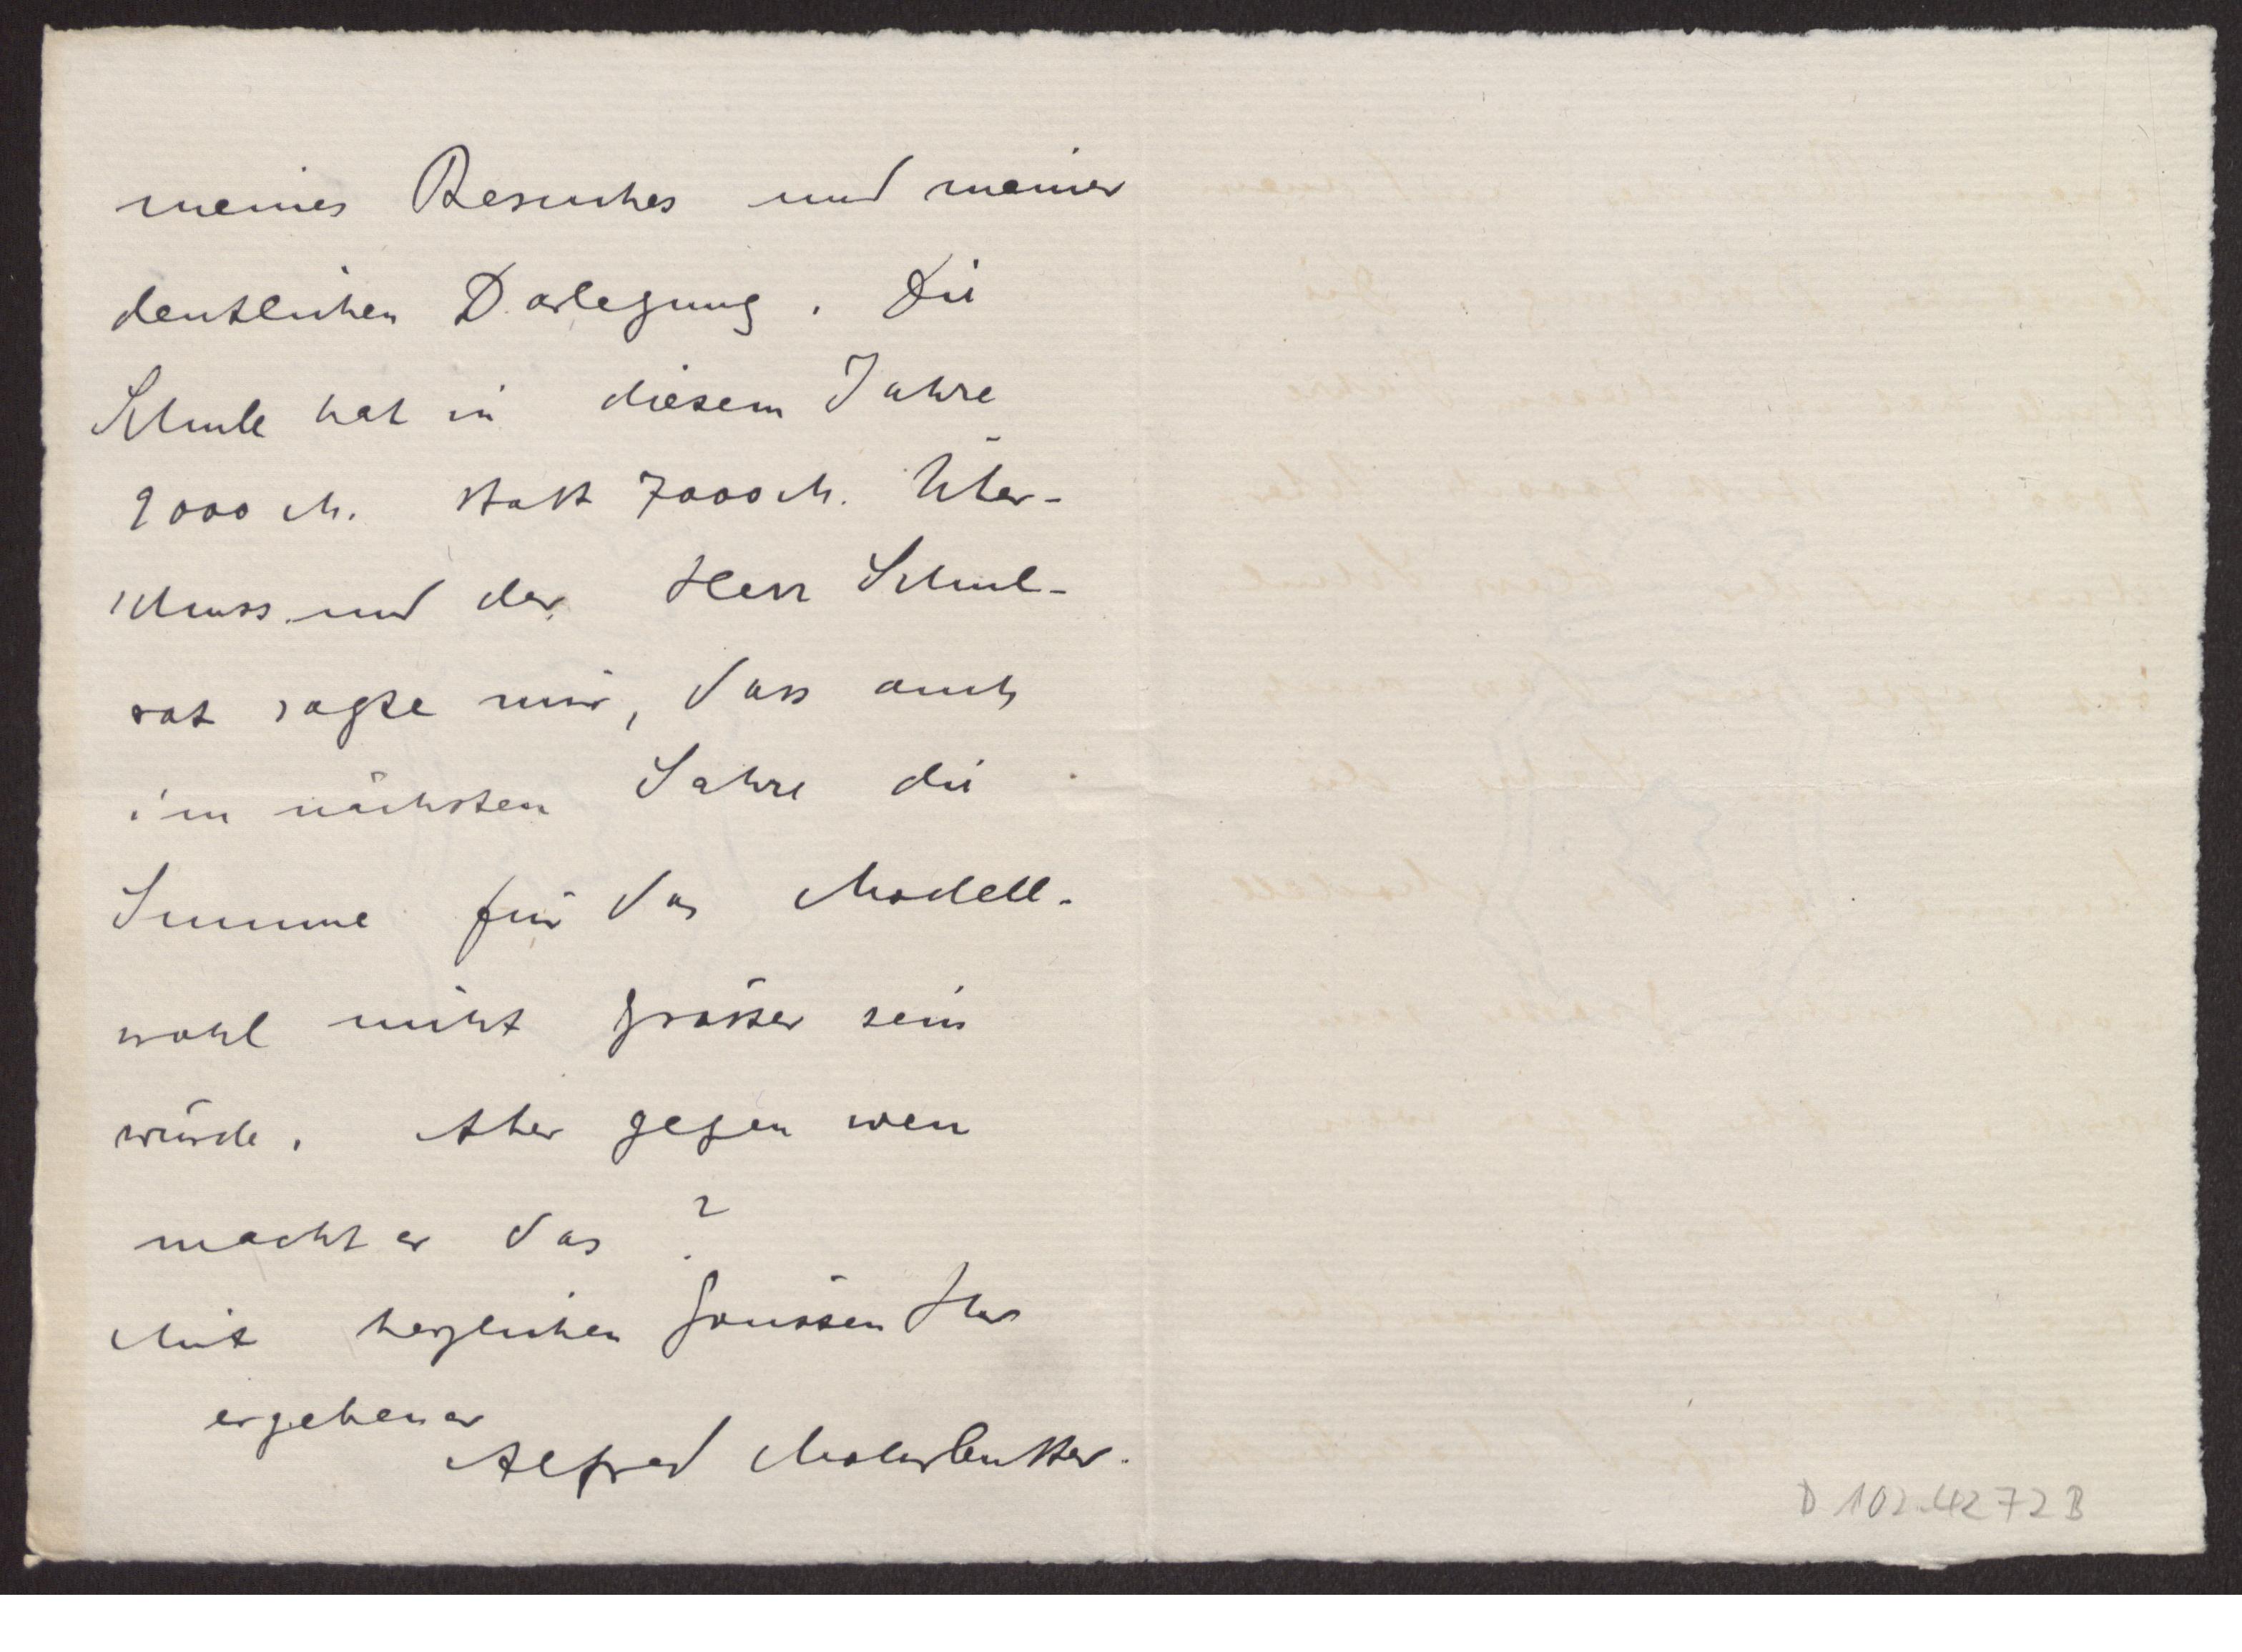 meines Besuches und meiner
deutlichen Darlegung. Die
Schule hat in diesem Jahre
9000 M. statt 7000 M. Über-
schuss und der Herr Schul-
rat sagte mir, dass auch
im nächsten Jahre die
Summe für das Modell
wohl nicht grösser sein
würde. Aber gegen wen
macht er das?
Mit herzlichen Grüssen Ihr
ergebener
Alfred Mohrbutter.
D 102.4272 B